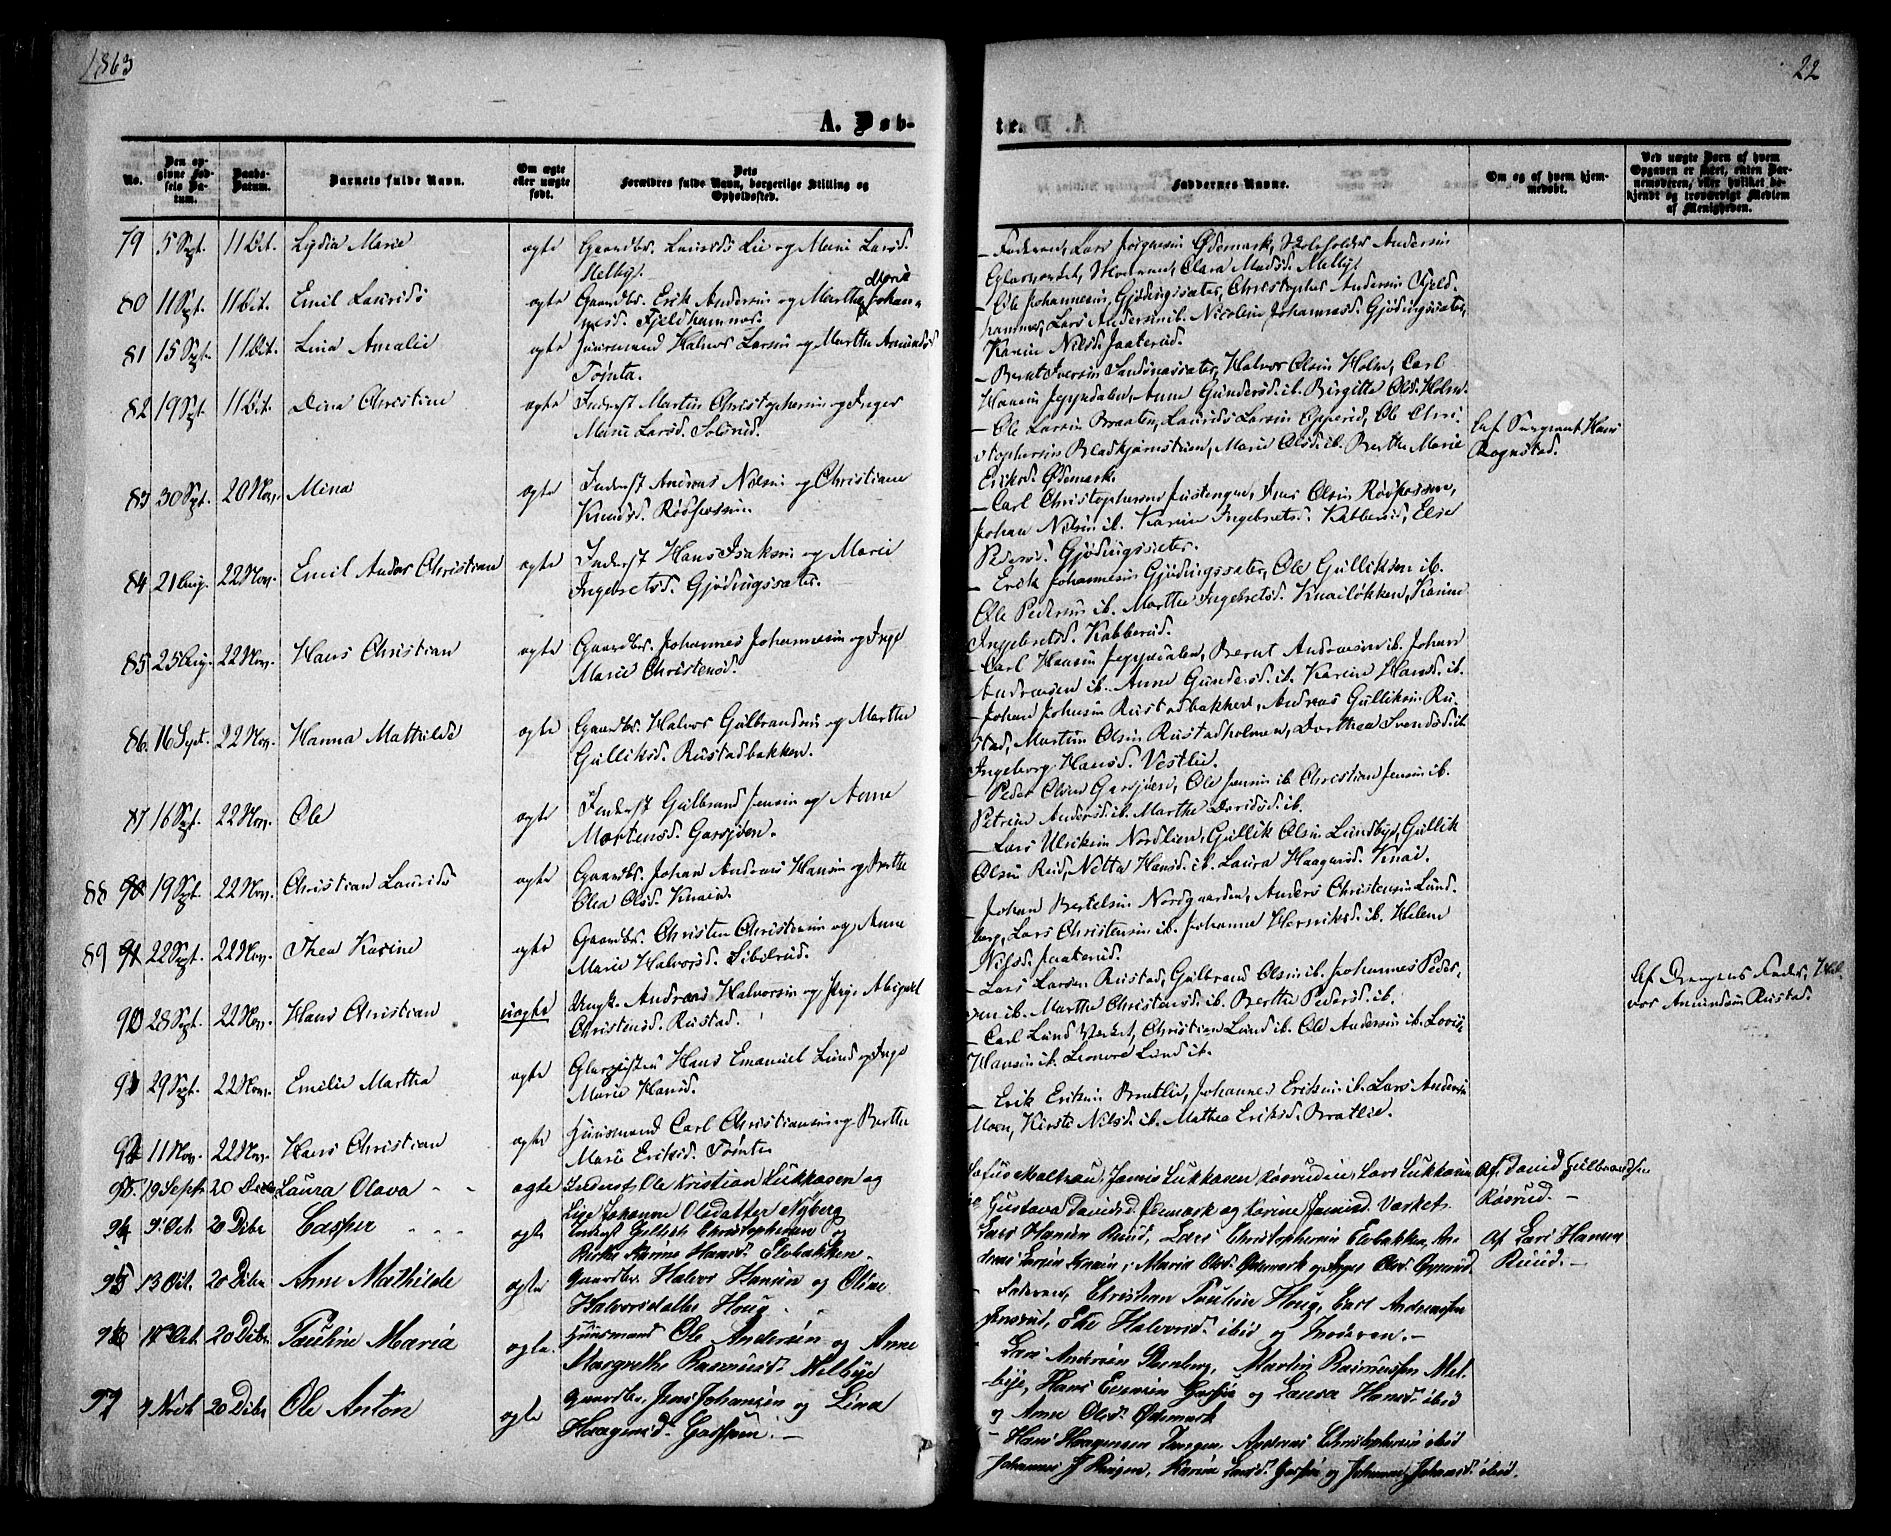 1863
22
A. Døb-
te.
No.
Den op-
givne Fød-
sels Da-
tum.
Daabs-
Datum.
Barnets fulde Navn.
Om ægte
eller uægte
født.
Dets
Forældres fulde Navn, borgerlige Stilling og
Opholdssted.
Faddernes Navne.
Om og af hvem hjem-
medøbt.
Ved uægte Børn af hvem
Opgaven er skeet, enten Bar-
nemoderen, eller hvilket be-
kjendt og troværdigt Medlem
af Menigheden.
79 5 Sept. 11 Oct. Lydia Marie ægte Gaardbr. Laurids Lie og Mari Larsd.
Melby.
– Faderen, Lars Jørgensen Ødemark, Andersen
Moderen, Clara Madsd. Melby.
80 11 Sept. 11 Oct. Emil Laurids ægte Gaardbr. Erik Andersen og Marthe Maria Johan-
nesd. Fjeldhammer.
– Ole Johannesen Gjødingssæter, Christopher Andersen Fjeld-
hammer, Lars Andersen ib. Nicolin Johannesd. Gjødingssæter,
Karin Nilsd. Jaaterud.
81 15 Sept. 11 Oct. Lina Amalie ægte Huusmand Halvor Larsen og Marthe Amundsd.
Tømta.
– Bernt Iversen Halvor Olsen Holm, Carl
Hansen Jeppedalen, Anne Gundersd. ib. Birgitte Olsd. Holm.
82 19 Sept. 11 Oct. Dina Christine ægte Inderst Martin Christophersen og Inger
Marie Larsd. Solerud.
– Ole Larsen Braaten, Laurids Larsen Opperud, Ole Chri-
stophersen Bladkjærnstuen, Marie Olsd. ib. Berthe Marie
Eriksd. Ødemark.
af Sergeant Hans
Rognstad.
83 30 Sept. 20 Nov. Mina ægte Inderst Andreas Nilsen og Christiane
Knudsd. Røsfossen.
– Carl Christophersen Justenga, Jens Olsen Røsfossen,
Johan Nilsen ib. Karin Ingebretsd. Kabberud, Else
Pedersd. Gjødingssæter.
84 21 Aug. 22 Nov. Emil Anders Christian ægte Inderst Hans Isaksen og Marie
Ingebretsd. Gjødingssæter.
– Erik Johannesen Gjødingssæter, Ole Gulliksen ib.
Ole Pedersen ib. Marthe Ingebretsd. Knailøkken, Karine
Ingebretsd. Kabberud.
85 25 Aug. 22 Nov. Hans Christian ægte Gaardbr. Johannes Johannesen og Inge
Marie Christensd.
– Carl Hansen Jeppedalen, Bernt Andreasen ib. Johan
Andreasen ib. Anne Gundersd. ib. Karin Hansd. ib.
86. 16 Sept. 22 Nov. Hanna Mathilde ægte Gaardbr. Halvor Gulbrandsen og Marthe
Gulliksd. Rustadbakken.
– Johan Johnsen Rustadbakken, Andreas Gulliksen Ru-
stad, Martin Olsen Rustadholmen, Dorthea Svendsd. ib.
Ingeborg Hansd. Vestlie.
87 16 Sept. 22 Nov. Ole ægte Inderst Gulbrand Jensen og Anne
Mortensd. Garsjøen.
– Peder Olsen Garsjøen, Ole Jensen ib. Christian Jensen ib.
Petrine Andersd. ib. Marthe Davidsd. ib.
88 19 Sept. 22 Nov. Christian Laurids ægte Gaardbr. Johan Andreas Hansen og Berthe
Olea Olsd. Knai.
– Lars Ulriksen Nordlien, Gullik Olsen Lundby, Gullik
Olsen Reid, Netta Hansd. ib. Laura Haagensd. Knai.
89 22 Sept. 22 Nov. Thea Karine ægte Gaardbr. Christen Christensen og Anne
Marie Halvorsd. Sibilrud.
– Johan Bertelsen Nordgaarden, Anders Christensen Lund-
berg, Lars Christensen ib. Johanne Henriksd. ib. Helene
Nilsd. Jaaterud.
90 28 Sept. 22 Nov. Hans Christian uægte Ungk. Andreas Halvorsen og Pige Abigael
Christensd. Rustad.
– Lars Larsen Rustad, Gulbrand Olsen ib. Johannes Peder-
sen ib. Marthe Christensd. ib. Berthe Pedersd. ib.
Af Drengens Fader, Hal-
vor Amundsen Rustad.
91 29 Sept. 22 Nov. Emilie Martha ægte Glaspuster Hans Emanuel Lund og Inge
Marie Hansd.
– Carl Lund Værket, Christian Lund ib. Ole Andersen ib. Lovise
Hansen ib. Leonora Lund ib.
92 11 Nov. 22 Nov. Hans Christian ægte Huusmand Carl Christiansen og Berthe
Marie Eriksd. Tømte.
– Erik Eriksen Bratlie, Johannes Eriksen ib. Lars Andersen
Moen, Kirsti Nilsd. ib. Mathea Eriksd. Bratlie.
93. 19 Sept. 20 Decbr Laura Olava ægte Inderst Ole Kristian Lukkasen og
Lise Johanne Olsdatter Nyberg
James Lukkasen Røsrudeie, Lars Lukkasen
Gustava Davidsd. Ødemark og Karine Jensd. Værket.
Af David Gulbrandsen
Røsrud. –
94 9 Oct. 20 Dcbr Casper ægte Inderst Gullik Christophersen og
Berthe Karine Hansd. Elvbakken.
Lars Hansen Ruud, Lars Christophersen Elvbakken, An-
dreas Larsen Maria Olsd. Ødemark og Inger Olsd.
Af Lars Hansen
Ruud. –
95 13 Oct. 20 Dcbr Anne Mathilde ægte Gaardbr. Halvor Hansen og Oline
Halvorsdatter Houg.
Faderen, Christian Paulsen Houg, Carl Andreassen
Halvorsd. ibid og Moderen. –
96 14 Oct. 20 Dcbr Pauline Maria ægte. Huusmand Ole Andersen og Anne
Margrethe Rasmusd. Melbye
Lars Andersen Stenberg, Martin Rasmussen Mel-
bye, Hans og Laura Hansd. ibid
og Anne Olsd. Ødemark
97 4 Novb 20 Dcbr Ole Anton ægte Gaardbr. Jens Johansen og Lina
Haagensd. –
– Hans Haagensen Andreas Christophersen ibid
Johannes Karine og Johanne Johansd. ibid.